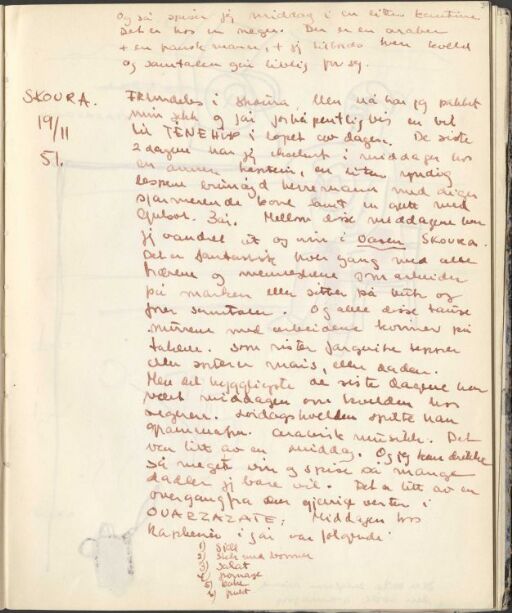 Og så spiser jeg middag i en liten kantine
Det er hos en neger. Der er en araber
+ en fransk mann, + jeg tilbyds hver kveld
og samtalen går livlig for seg.
SKOURA.
19/11
51.
Fremdeles i Skoura, Men nå har jeg pakket
min sekk og får forhåpentligvis en bil
til TENEHIR i løpet av dagen. De siste
2 dagene har jeg i middager hos
en annen kaptein, en liten
herremann med
sjarmerende kone samt en gutt med
3 år. Mellom disse middagene har
jeg vandret ut og inn i Oasen SKOURA.
Det er fantastisk hver gang med alle
trærne og menneskene som arbeider
på marken eller sitter på huk og
fører samtaler. Og alle disse tause
murene med arbeidende kvinner på
takene. som rister fargerike tepper
eller sorterer mais, eller dadler.
Men det hyggeligste de siste dagene har
vært middagen om kvelden hos
negeren. Lördagskvelden spilte han
grammofon. arabisk musikk. Det
var litt av en middag. Og jeg kan drikke
så meget vin og spise så mange
dadler jeg bare vil. Det er litt av en
overgang fra den gjerrige verten i
OUARZAZATE; Middagen hos
Kapteinen i går var følgende:
1) Sild
2) Stek med bønner
3) salat
4) fromage
5) kake
6) frukt